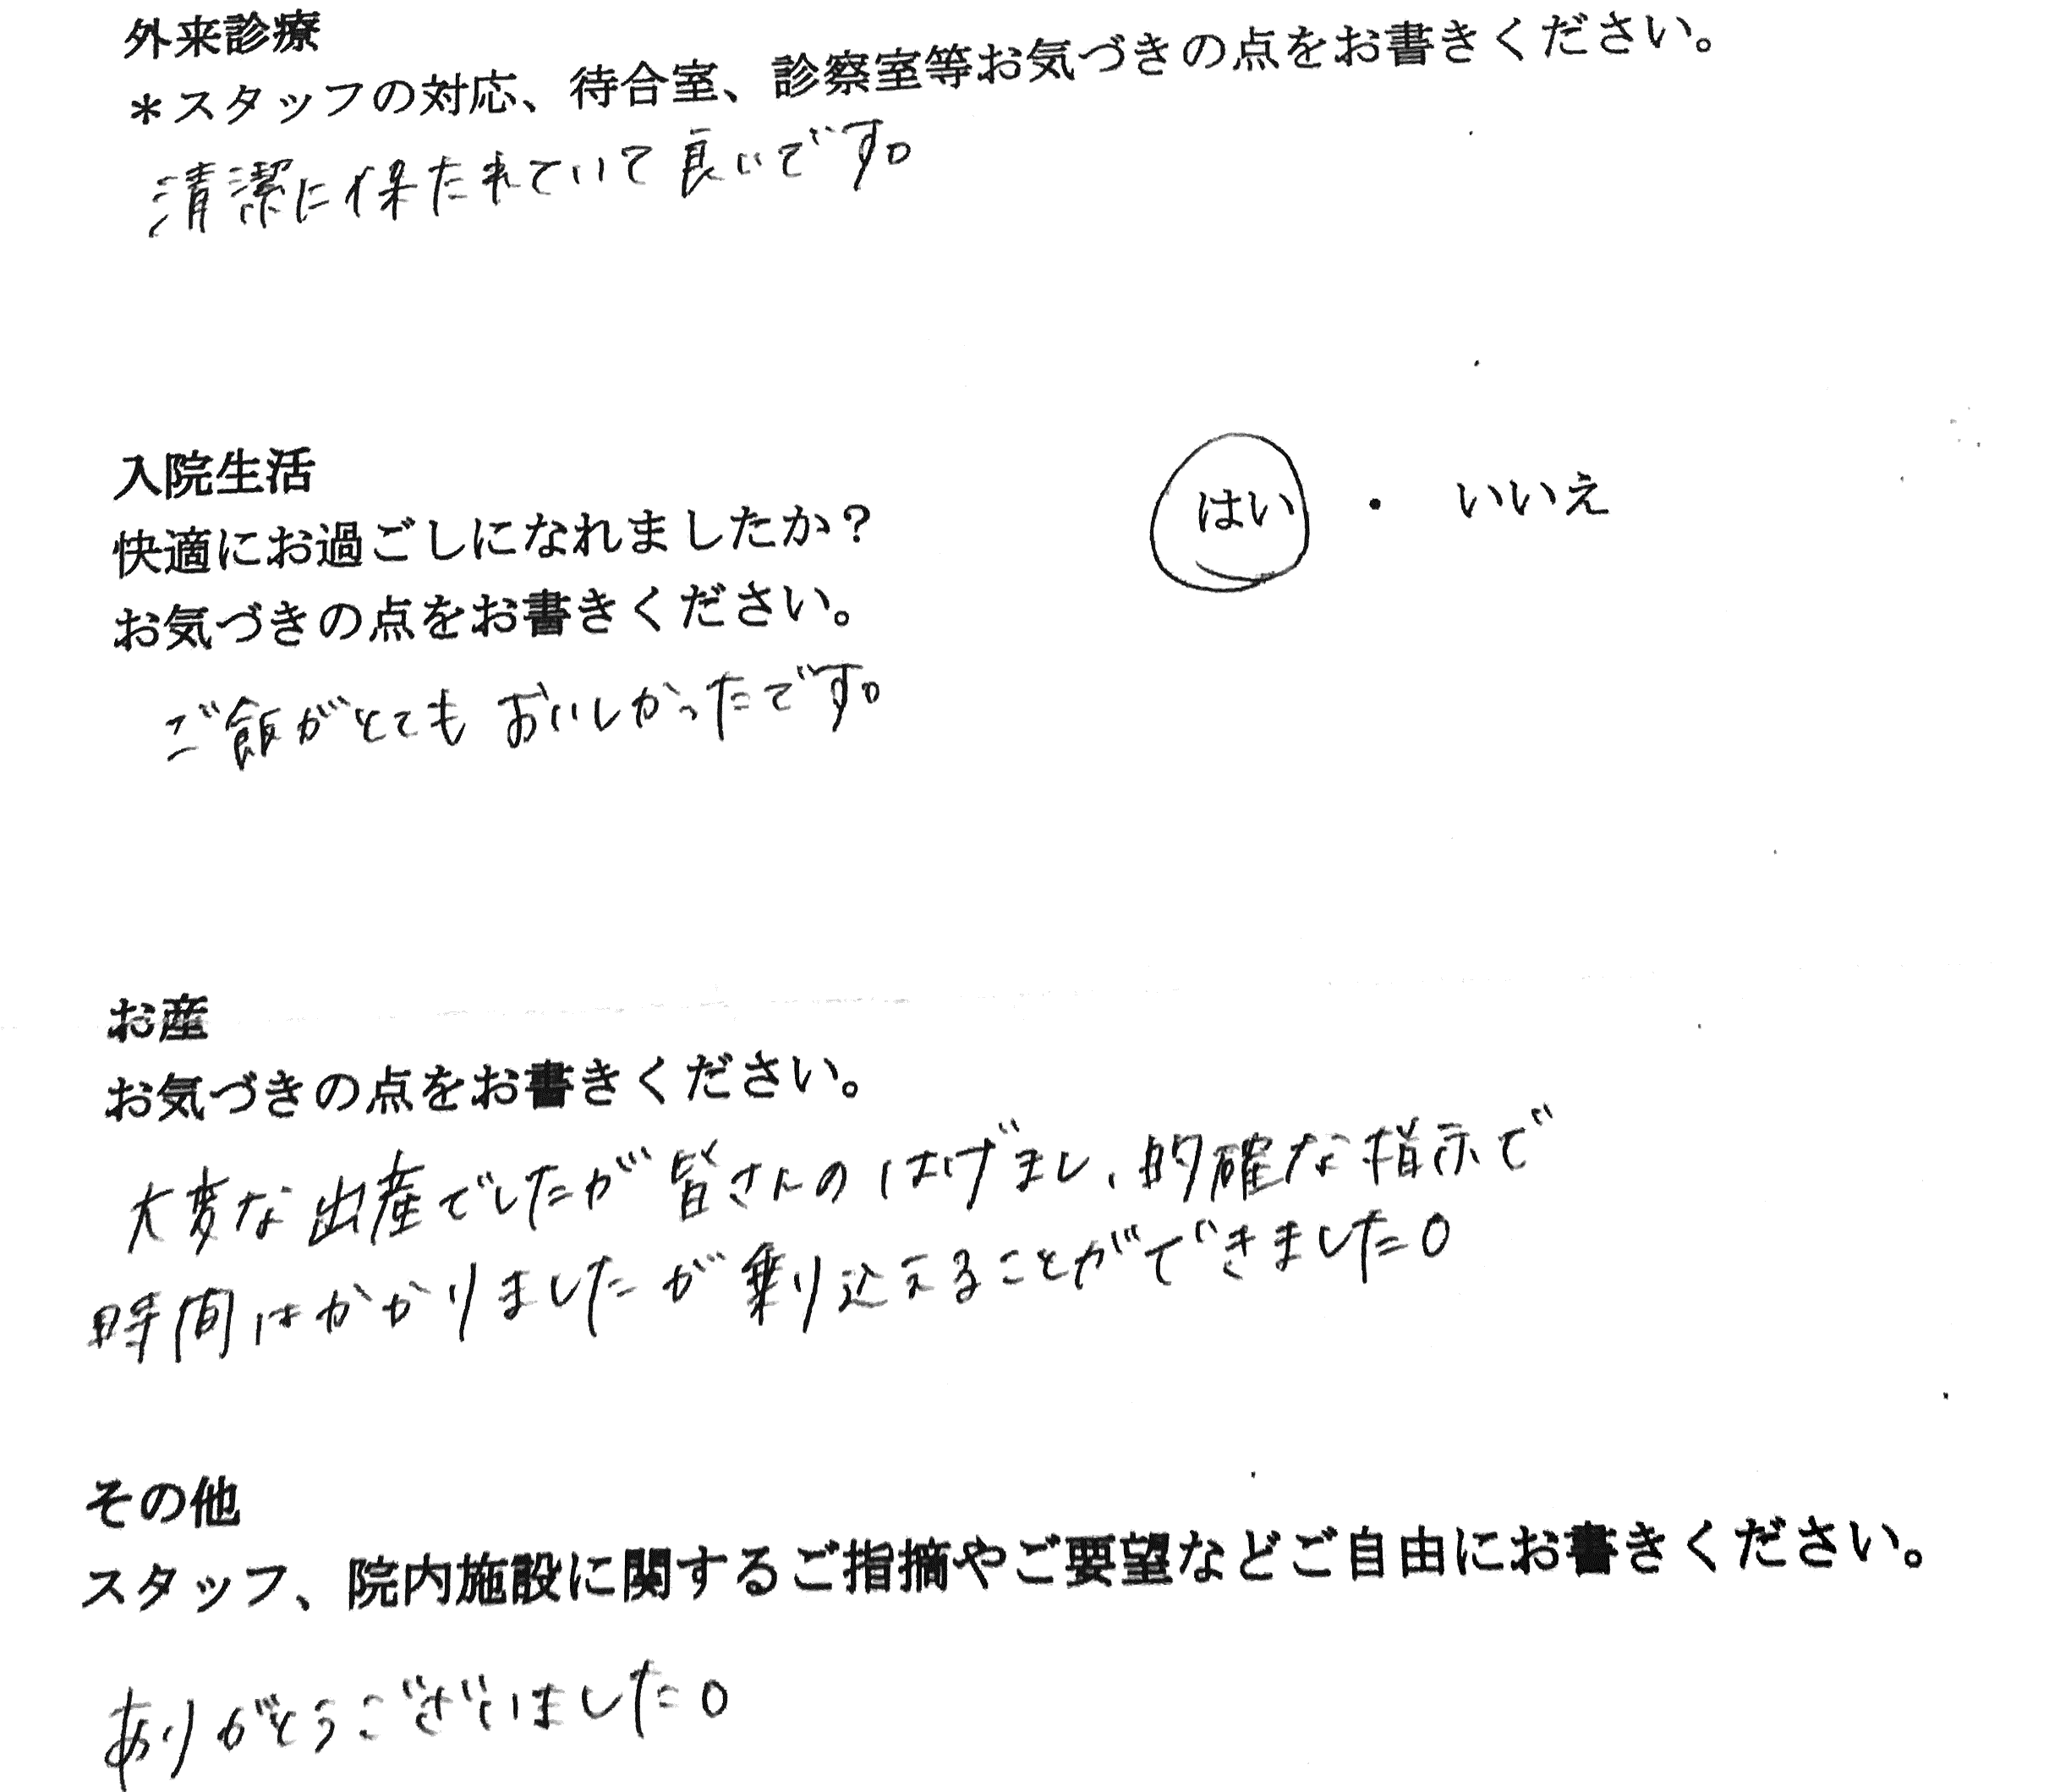 外来診療
＊スタッフの対応、待合室、診察室等お気づきの点をお書きください。
清潔に保たれていて良いです。
入院生活
はい ・ いいえ
快適にお過ごしになれましたか？
お気づきの点をお書きください。
ご飯がとてもおいしかったです。
お産
お気づきの点をお書きください。
大変な出産でしたが皆さんのはげまし、的確な指示で
時間はかかりましたが乗り込えることができました。
その他
スタッフ、院内施設に関するご指摘やご要望などご自由にお書きください。
ありがとうございました。